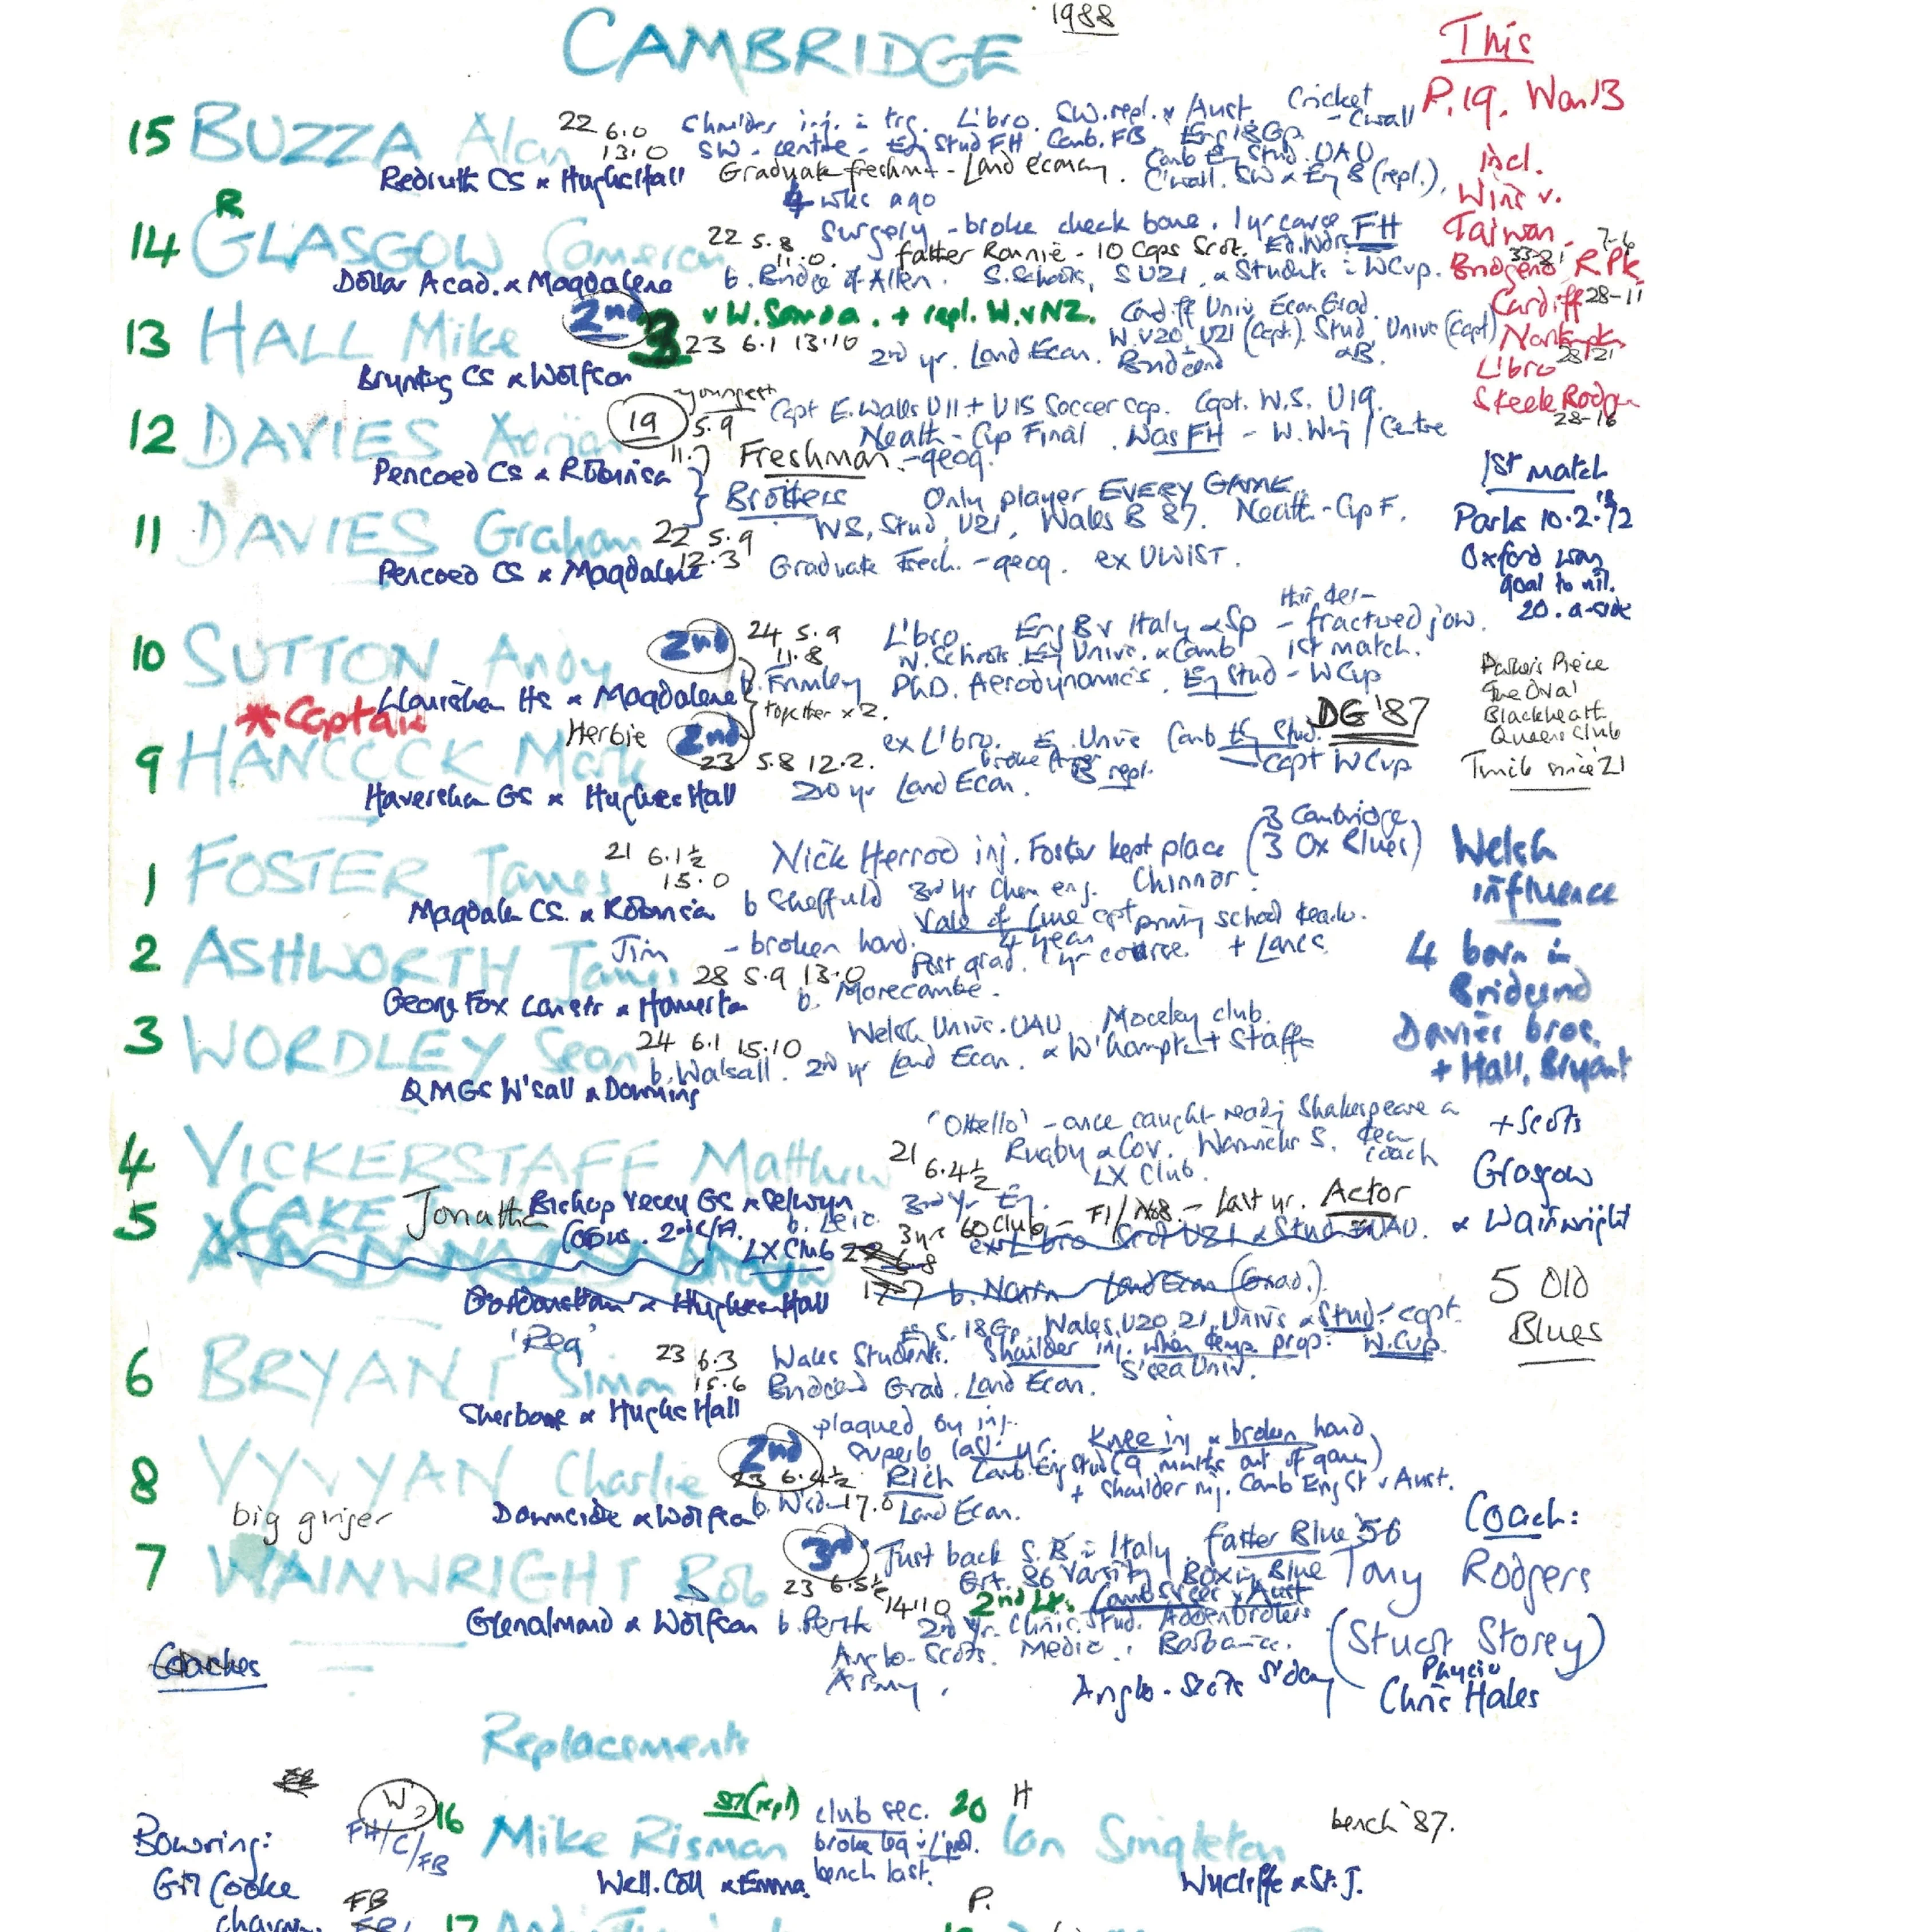 1988
CAMBRIDGE
This
P.19. Won 13
15 BUZZA Alan 22 6.0 13.0
Shoulder inj. L'bro. SW.repl. v Aust. Cricket - C'wall
SW - centre - Eng Stud FH, Camb. FB Eng 18Gp
Camb Eng Stud. UAU
Redruth CS & Hughes Hall
Graduate freshm - Land economy. C'wall. SW & Eng B (repl.),
incl.
Wins v.
Taiwan
R
4 wks ago
14 GLASGOW Cameron 22 5.8 11.0.
Surgery - broke cheek bone. 1 yr course FH
father Ronnie - 10 Caps Scot. Ed. Wdrs
Dollar Acad. & Magdalene
b. Bridge of Allan. S. Schools, SU21 & Students WCup.
Bridgend RPk
Cardiff 28-11
28-21
L'bro
Steele Rodger
28-16
13 HALL Mike 2nd 3
v W. Samoa. + repl. W. v NZ.
Cardiff Univ Econ Grad.
23 6.1 13.10
W. U20, U21 (Capt). Stud, Univs (Capt) & B.
2nd yr. Land Econ. Bridgend
Brynteg CS & Wolfson
12 DAVIES Adrian 19 youngest 5.9 11.7
Capt E. Wales U11 + U15 Soccer cap. Capt. W.S. U19.
Neath - Cup Final. Was FH - W. Wing / Centre
Freshman. - geog.
Pencoed CS & Robinson
Brothers
Only player EVERY GAME.
11 DAVIES Graham 22 5.9 12.3
WS, Stud, U21, Wales B 87. Neath - Cup F.
Pencoed CS & Magdalene
Graduate Fresh. - geog. ex UWIST.
1st match
Parks 10.2.'72
Oxford won
goal to nil.
20. a-side
10 SUTTON Andy 2nd 24 5.9 11.8
L'bro. Eng B v Italy & Sp - fractured jaw.
1st match.
N. Schools. Eng Univs. & Camb
Llanishen HS & Magdalene
b. Frimley PhD. Aerodynamics. Eng Stud - W Cup
together x 2.
Parker's Piece
The Oval
Blackheath
Queens Club
Twick since '21
*Captain
Herbie
9 HANCOCK Mark 2nd 23 5.8 12.2.
ex L'bro. Eng. Univs Camb Eng Stud. DG '87
B repl. Capt WCup
Haversham GS & Hughes Hall
2nd yr Land Econ.
1 FOSTER James 21 6.1½ 15.0
Nick Herrod inj. Foster kept place (3 Cambridge 3 Ox Blues)
b Sheffield 3rd Yr Chem eng. Chinnor.
Magdalen CS. & Robinson
Vale of Lune capt
Welsh
influence
2 ASHWORTH James
Jim - broken hand. 28 5.9 13.0
Post grad. 1 yr course. + Lancs.
4 year
George Fox Lancstr & Homerton
b. Morecambe.
4 born in
Bridgend
Davies bros.
+ Hall, Bryant
3 WORDLEY Sean 24 6.1 15.10
Welsh Univs. UAU Moseley club.
b. Walsall. 2nd yr Land Econ. & W'hampton + Staffs
QMGS W'sall & Downing
'Othello' - once caught reading Shakespeare
+ Scots
Glasgow
& Wainwright
4 VICKERSTAFF Matthew 21 6.4½
Rugby & Cov. Warwicks S. coach
LX Club.
Bishop Vesey GS & Selwyn
b. Leic. 3rd Yr. Eng.
5 CAKE Jonathan
Corpus.
3 yrs 60 Club - Last yr. Actor
LX Club
Gordonstoun & Hughes Hall
Land Econ (Grad.).
5 Old
Blues
'Reg'
E.S. 18Gp. Wales U20, 21, Univs & Stud - capt
6 BRYANT Simon 23 6.3 15.6
Wales Students. Shoulder inj. when temp prop. W.Cup.
Bridgend Grad. Land Econ. S'sea Univ.
Sherborne & Hughes Hall
plagued by inj.
8 VYVYAN Charlie 2nd 23 6.4½
superb last yr. Knee inj & broken hand
Rich Camb. Eng Stud (9 months out of game)
+ shoulder inj. Camb Eng St v Aust.
17.0 Land Econ.
Downside & Wolfson
big ginger
7 WAINWRIGHT Rob 3rd 23 6.5½ 14.10
Just back S. B Italy. father Blue '56
86 Varsity / Boxing Blue
2nd Lt.
2nd Yr. Clinic. Stud. Addenbrookes
Glenalmond & Wolfson b. Perth
Anglo-Scots. Medic.
Army.
Anglo-Scots S'day
Coach:
Tony Rodgers
(Stuart Storey)
Physio
Chris Hales
Coaches
Replacements
W 16 Mike Risman 87 (repl)
FH/C/FB
club sec.
broke leg
bench last.
Well. Coll & Emma.
20 H Ian Singleton
bench '87.
Wycliffe & St. J.
Bowring:
Gill Cooke
FB
P.
17